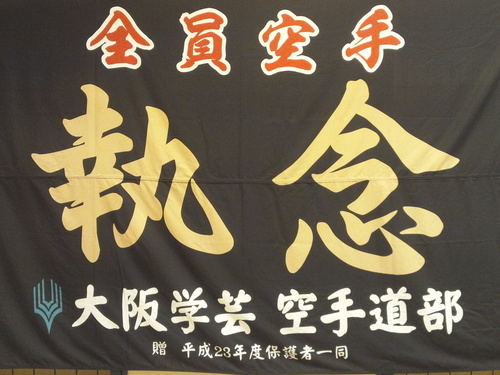 全員空手
執念
大阪学芸 空手道部
贈 平成23年度保護者一同